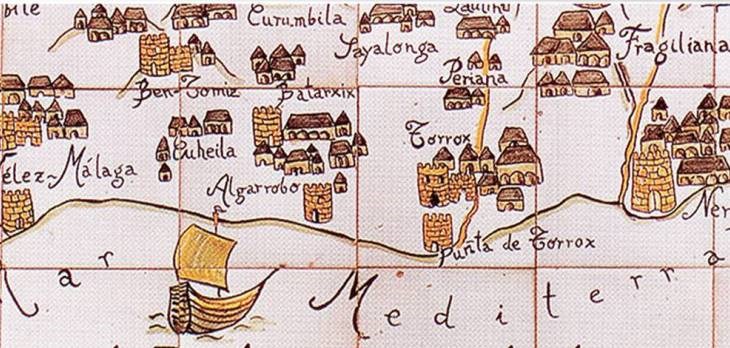 Curumbila
Sayalonga
Fragiliana
Periana
Ben-Tomiz
Batarxix
Torrox
Cuheila
élez-Málaga
Algarrobo
Ner
Punta de Torrox
Mar
Mediterra